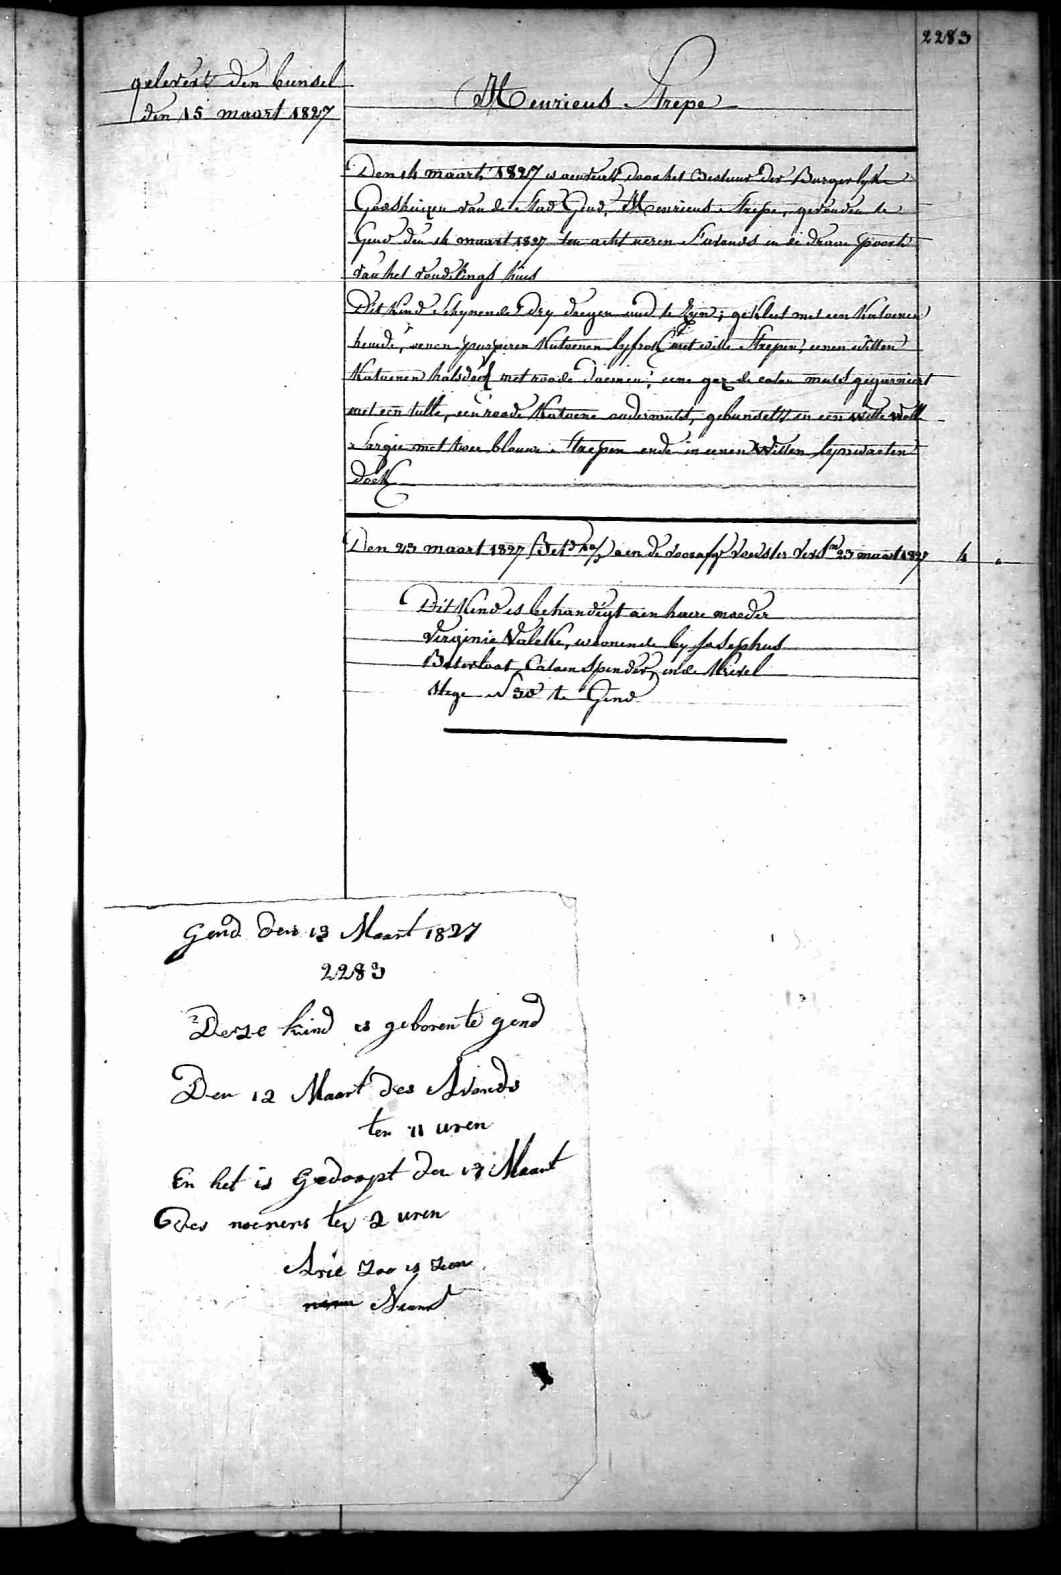 2283
gelevert den bunsel
den 15 maart 1827
Henricus Strepe
Den 14 maart 1827 is aenveert door het Bestuur der Burgerlyke
Godshuizen van de Stad Gend, Henricus Strepe, gevonden te
Gend den 14 maart 1827 ten acht ueren S'avonds in de draai poorte
van het vondelings huis
Dit kind schynende dry daegen oud te zyn; gekleet met een katoenen
hemde, eenen purperen katoenen lyfrok met witte strepen, eenen witten
katoenen halsdoek met roode blomen; eene gaz de coton muts gegarniert
met een tulle, een roode katoene ondermuts, gebunselt in een witte wolle
sargie met twee blauwe strepen ende in eenen witten lynwaeten
doek
Den 23 maart 1827 aen de voorsz. voedster 23 maart 1827 4
Dit kind is behandigt aen haere moeder
Virginie Valcke, woonende by Josephus
Catoen spinder, in de
stege N 38 te Gend
Gend den 13 Maart 1827
2283
Deze kind is geboren te gend
Den 12 Maart des Avonds
ten 11 uren
En het is Gedoopt den 13 Maart
des noenens ten 2 uren
Arie zoo is zen
Naam